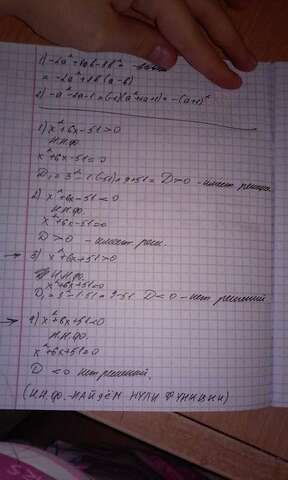 1) -2a²+8ab-8b²=
= -2a²+8b(a-b)
2) -a²-2a-1=(-1)(a²+2a+1)=-(a+1)²
1) x²+6x-51>0
Н.Н.Ф.
x²+6x-51=0
D₁=3²-1·(-51)=9+51= D>0 - имеет решения
2) x²+6x-51<0
Н.Н.Ф.
x²+6x-51=0
D>0 - имеет реш.
→ 3) x²+6x+51>0
Н.Н.Ф.
x²+6x+51=0
D₁=3²-1·51=9-51 D<0 - нет решений
→ 4) x²+6x+51<0
Н.Н.Ф.
x²+6x+51=0
D<0 нет решений.
(Н.Н.Ф. - НАЙДЁМ НУЛИ ФУНКЦИИ)